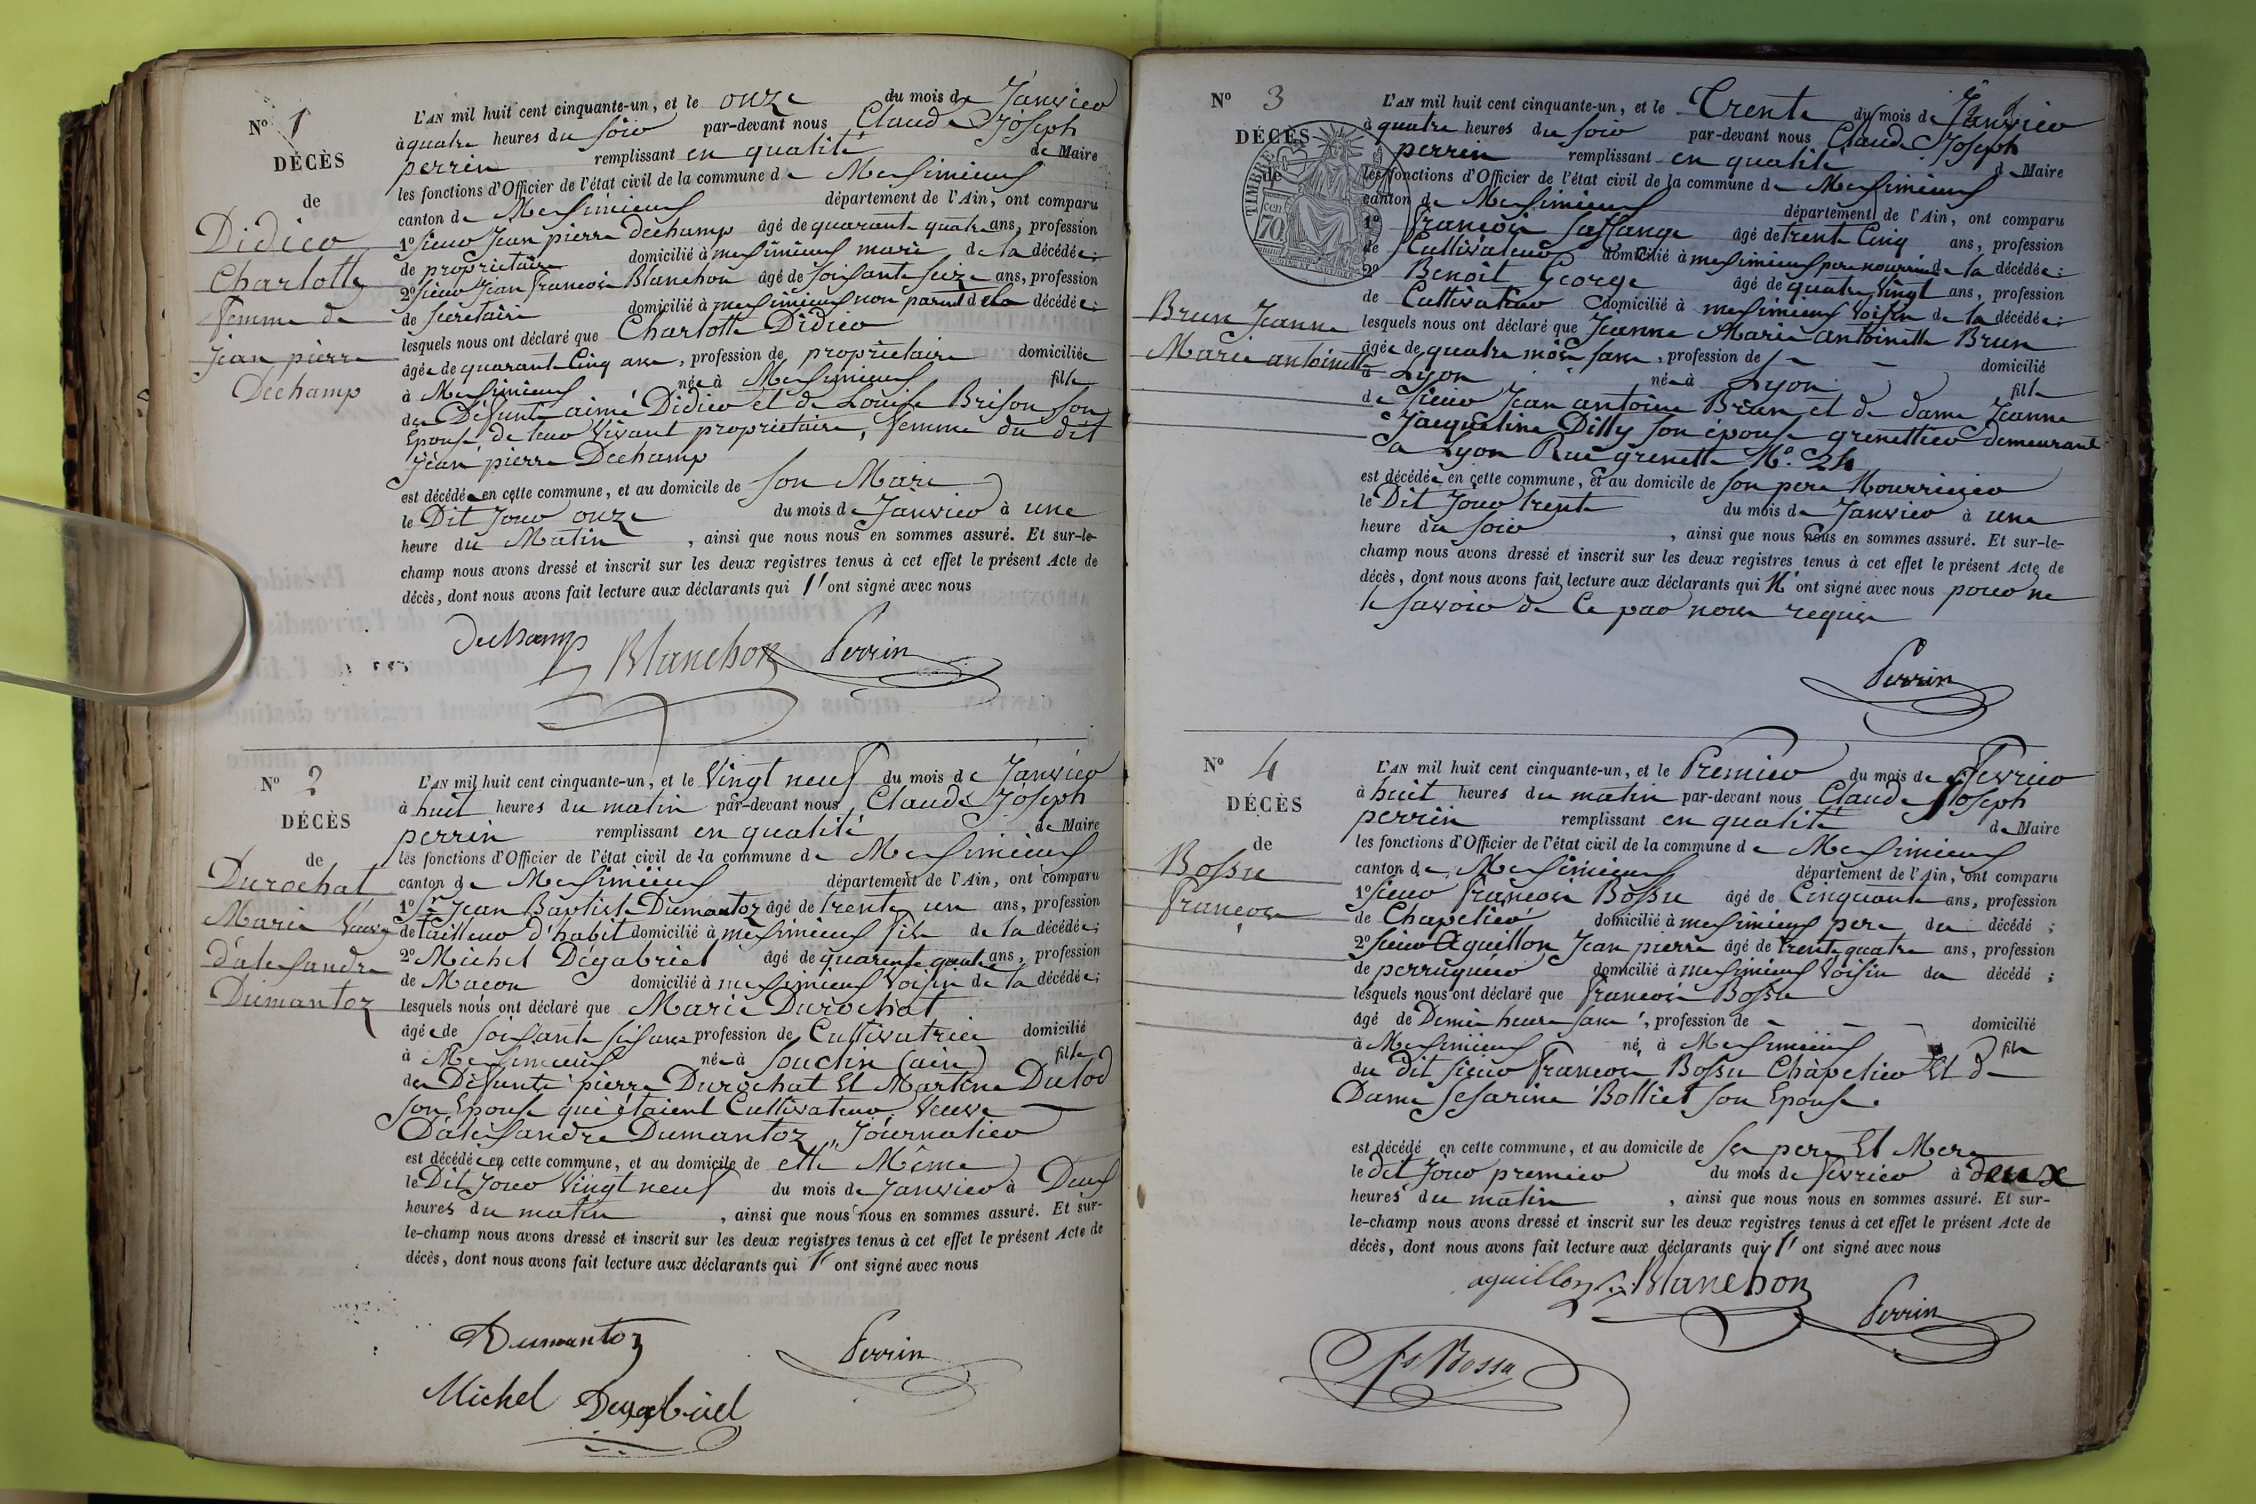 N° 1
DÉCÈS
de
Didier
Charlotte
femme de
Jean pierre
Dechamp
L'AN mil huit cent cinquante-un, et le onze du mois de Janvier
à quatre heures du soir par-devant nous Claude Joseph
perrin remplissant en qualité de Maire
les fonctions d'Officier de l'état civil de la commune de Meximieux
canton de Meximieux département de l'Ain, ont comparu
1° sieur Jean pierre Dechamp âgé de quarante quatre ans, profession
de propriétaire domicilié à meximieux mari de la décédée;
2° sieur Jean francois Blanchon âgé de soixante seize ans, profession
de secretaire domicilié à meximieux non parent de la décédée;
lesquels nous ont déclaré que Charlotte Didier
âgée de quarante Cinq ans, profession de propriétaire domiciliée
à Meximieux née à Meximieux fille
des Défunts aimé Didier et de Louise Brison son
Epouse de leur Vivant propriétaire, femme du dit
Jean pierre Dechamp
est décédée en cette commune, et au domicile de son Mari
le Dit Jour onze du mois de Janvier à une
heure du Matin, ainsi que nous nous en sommes assuré. Et sur-le-
champ nous avons dressé et inscrit sur les deux registres tenus à cet effet le présent Acte de
décès, dont nous avons fait lecture aux déclarants qui l'ont signé avec nous
dechamp Blanchon Perrin
N° 2
DÉCÈS
de
Durochat
Marie Veuve
d'alexandre
Dumantoz
L'AN mil huit cent cinquante-un, et le Vingt neuf du mois de Janvier
à huit heures du matin par-devant nous Claude Joseph
perrin remplissant en qualité de Maire
les fonctions d'Officier de l'état civil de la commune de Meximieux
canton de Meximieux département de l'Ain, ont comparu
1° Sr Jean Baptiste Dumantoz âgé de trente un ans, profession
de tailleur d'habit domicilié à meximieux fils de la décédée;
2° Michel Dégabriel âgé de quarente quatre ans, profession
de Macon domicilié à meximieux Voisin de la décédée;
lesquels nous ont déclaré que Marie Durochat
âgée de soixante six ans profession de Cultivatrice domicilié
à Meximieux née à Souclin (ain) fille
des Défunts pierre Durochat Et Martine Dutod
son Epouse qui étaient Cultivateur Veuve
D'alexandre Dumantoz, Journalier
est décédée en cette commune, et au domicile de elle Même
le Dit Jour Vingt neuf du mois de Janvier à Deux
heures du matin, ainsi que nous nous en sommes assuré. Et sur-
le-champ nous avons dressé et inscrit sur les deux registres tenus à cet effet le présent Acte de
décès, dont nous avons fait lecture aux déclarants qui l'ont signé avec nous
Dumantoz Perrin
Michel Degabriel
N° 3
DÉCÈS
de
TIMBRE
cen
70
Brun Jeanne
Marie antoinette
L'AN mil huit cent cinquante-un, et le Trente du mois de Janvier
à quatre heures du soir par-devant nous Claude Joseph
perrin remplissant en qualité de Maire
les fonctions d'Officier de l'état civil de la commune de Meximieux
canton de Meximieux département de l'Ain, ont comparu
1° francois Laffange âgé de trente Cinq ans, profession
de Cultivateur domicilié à meximieux pere nourricier de la décédée;
2° Benoit George âgé de quatre Vingt ans, profession
de Cultivateur domicilié à meximieux Voisin de la décédée;
lesquels nous ont déclaré que Jeanne Marie antoinette Brun
âgée de quatre mois sans, profession de domicilié
à Lyon née à Lyon fille
de sieur Jean antoine Brun et de dame Jeanne
Jacqueline Dilly son épouse grenettier demeurant
a Lyon Rue grenette N° 24
est décédée en cette commune, et au domicile de son pere Nourricier
le Dit Jour trente du mois de Janvier à une
heure du soir, ainsi que nous nous en sommes assuré. Et sur-le-
champ nous avons dressé et inscrit sur les deux registres tenus à cet effet le présent Acte de
décès, dont nous avons fait lecture aux déclarants qui N'ont signé avec nous pour ne
le savoir de Ce par nous requis
Perrin
N° 4
DÉCÈS
de
Bossu
francois
L'AN mil huit cent cinquante-un, et le Premier du mois de Fevrier
à huit heures du matin par-devant nous Claude Joseph
perrin remplissant en qualité de Maire
les fonctions d'Officier de l'état civil de la commune de Meximieux
canton de Meximieux département de l'Ain, ont comparu
1° sieur francois Bossu âgé de Cinquante ans, profession
de Chapelier domicilié à meximieux pere du décédé;
2° sieur Aguillon Jean pierre âgé de trente quatre ans, profession
de perruquier domicilié à meximieux Voisin du décédé;
lesquels nous ont déclaré que francois Bossu
âgé de Demie heure sans, profession de domicilié
à Meximieux né à Meximieux fils
du dit sieur francois Bossu Chapelier Et de
Dame Sesarine Bolliet son Epouse.
est décédé en cette commune, et au domicile de ses pere Et Mere
le dit Jour premier du mois de fevrier à deux
heures du matin, ainsi que nous nous en sommes assuré. Et sur-
le-champ nous avons dressé et inscrit sur les deux registres tenus à cet effet le présent Acte de
décès, dont nous avons fait lecture aux déclarants qui l'ont signé avec nous
aguillon Blanchon Perrin
fs Bossu